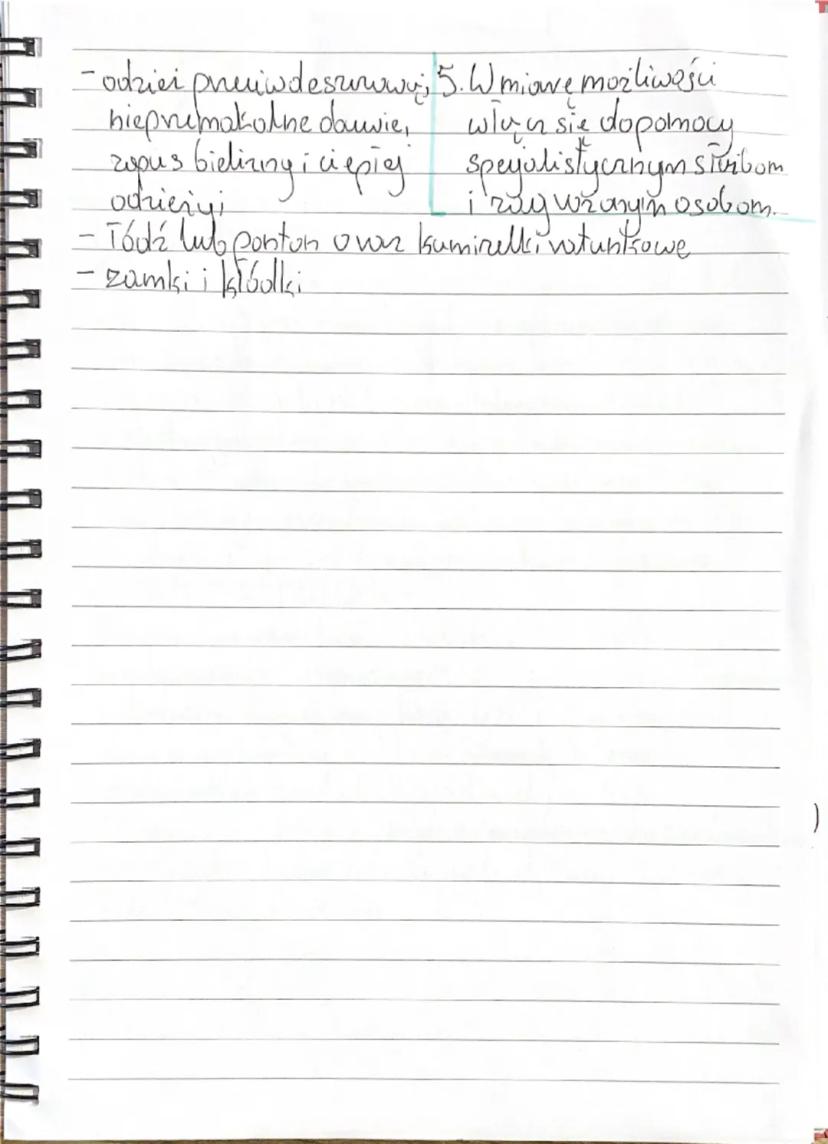 - odzież przeciwdeszczową,
nieprzemakalne obuwie,
zapas bielizny i ciepłej
odzieży,
5. W miarę możliwości
włącz się do pomocy
specjalistycznym służbom
i zagrożonym osobom.
- łódź lub ponton oraz kamizelki ratunkowe
- zamki i kłódki